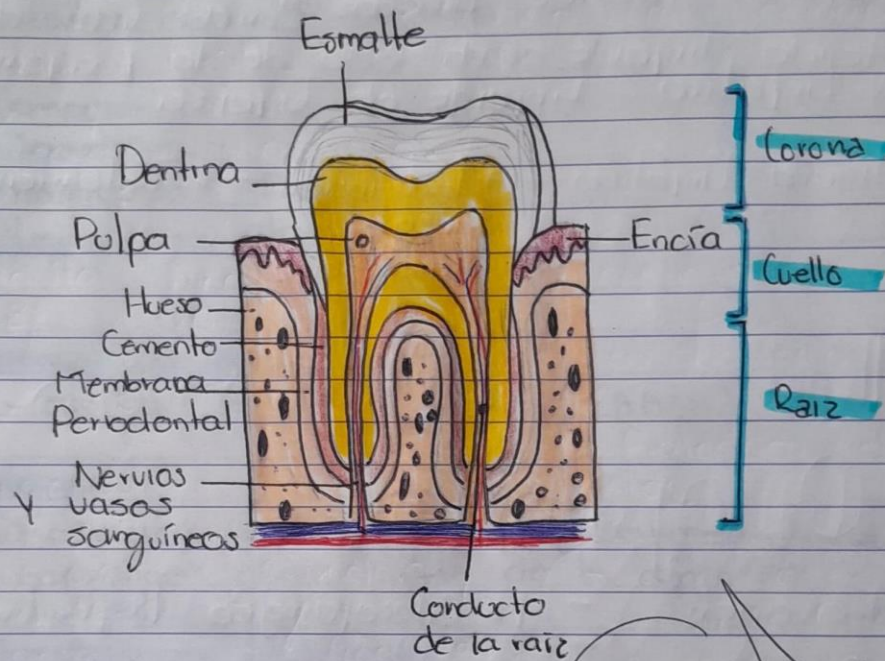 Esmalte
Dentina
Pulpa
Hueso
Cemento
Membrana
Periodontal
Nervios
y vasos
sanguíneos
Conducto
de la raiz
Encía
Corona
Cuello
Raiz